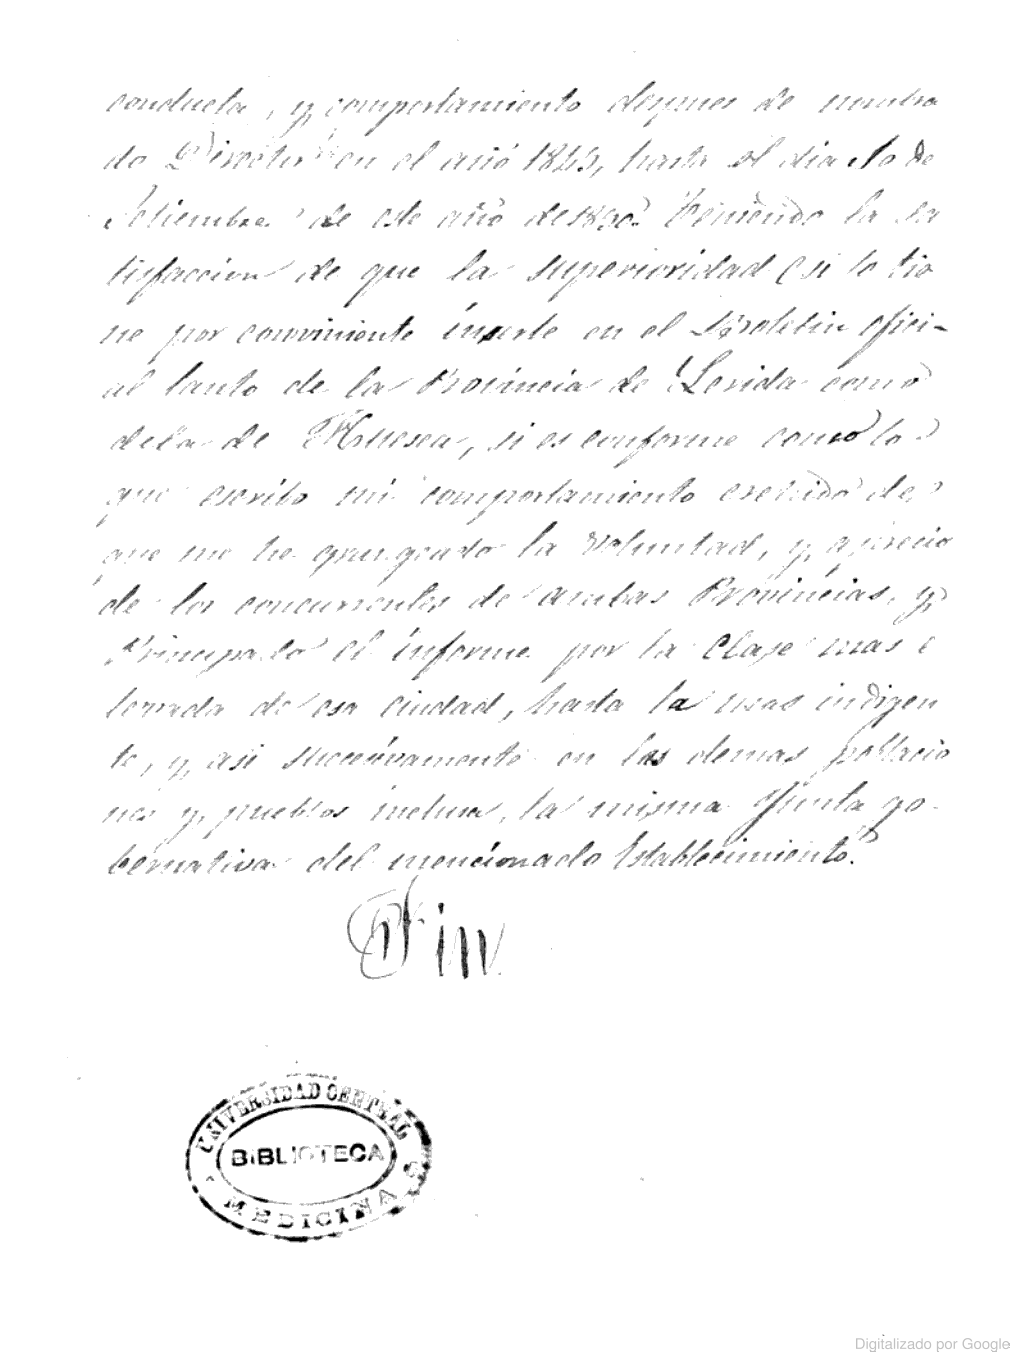 conducta, y, comportamiento despues de nombra
do Director en el año 18 hasta el dia de
Setiembre de este año de Teniendo la sa
tisfaccion de que la superioridad (si lo tie
ne por conviniente inserte en el Boletin ofici-
al tanto de la Provincia de Lerida como
dela de Huesca, si es conforme como lo
que escribo mi comportamiento de
que me he grangeado la voluntad, y, aprecio
de los concurrentes de ambas Provincias, y,
Principado el informe por la Clase mas e
de esa ciudad, hasta la mas indigen
te, y, asi succesivamente en las demas poblacio
nes y, pueblos inclusa, la misma Junta go-
bernativa del mencionado Establecimiento.
Fin
UNIVERSIDAD CENTRAL
BIBLIOTECA
MEDICINA
Digitalizado por Google